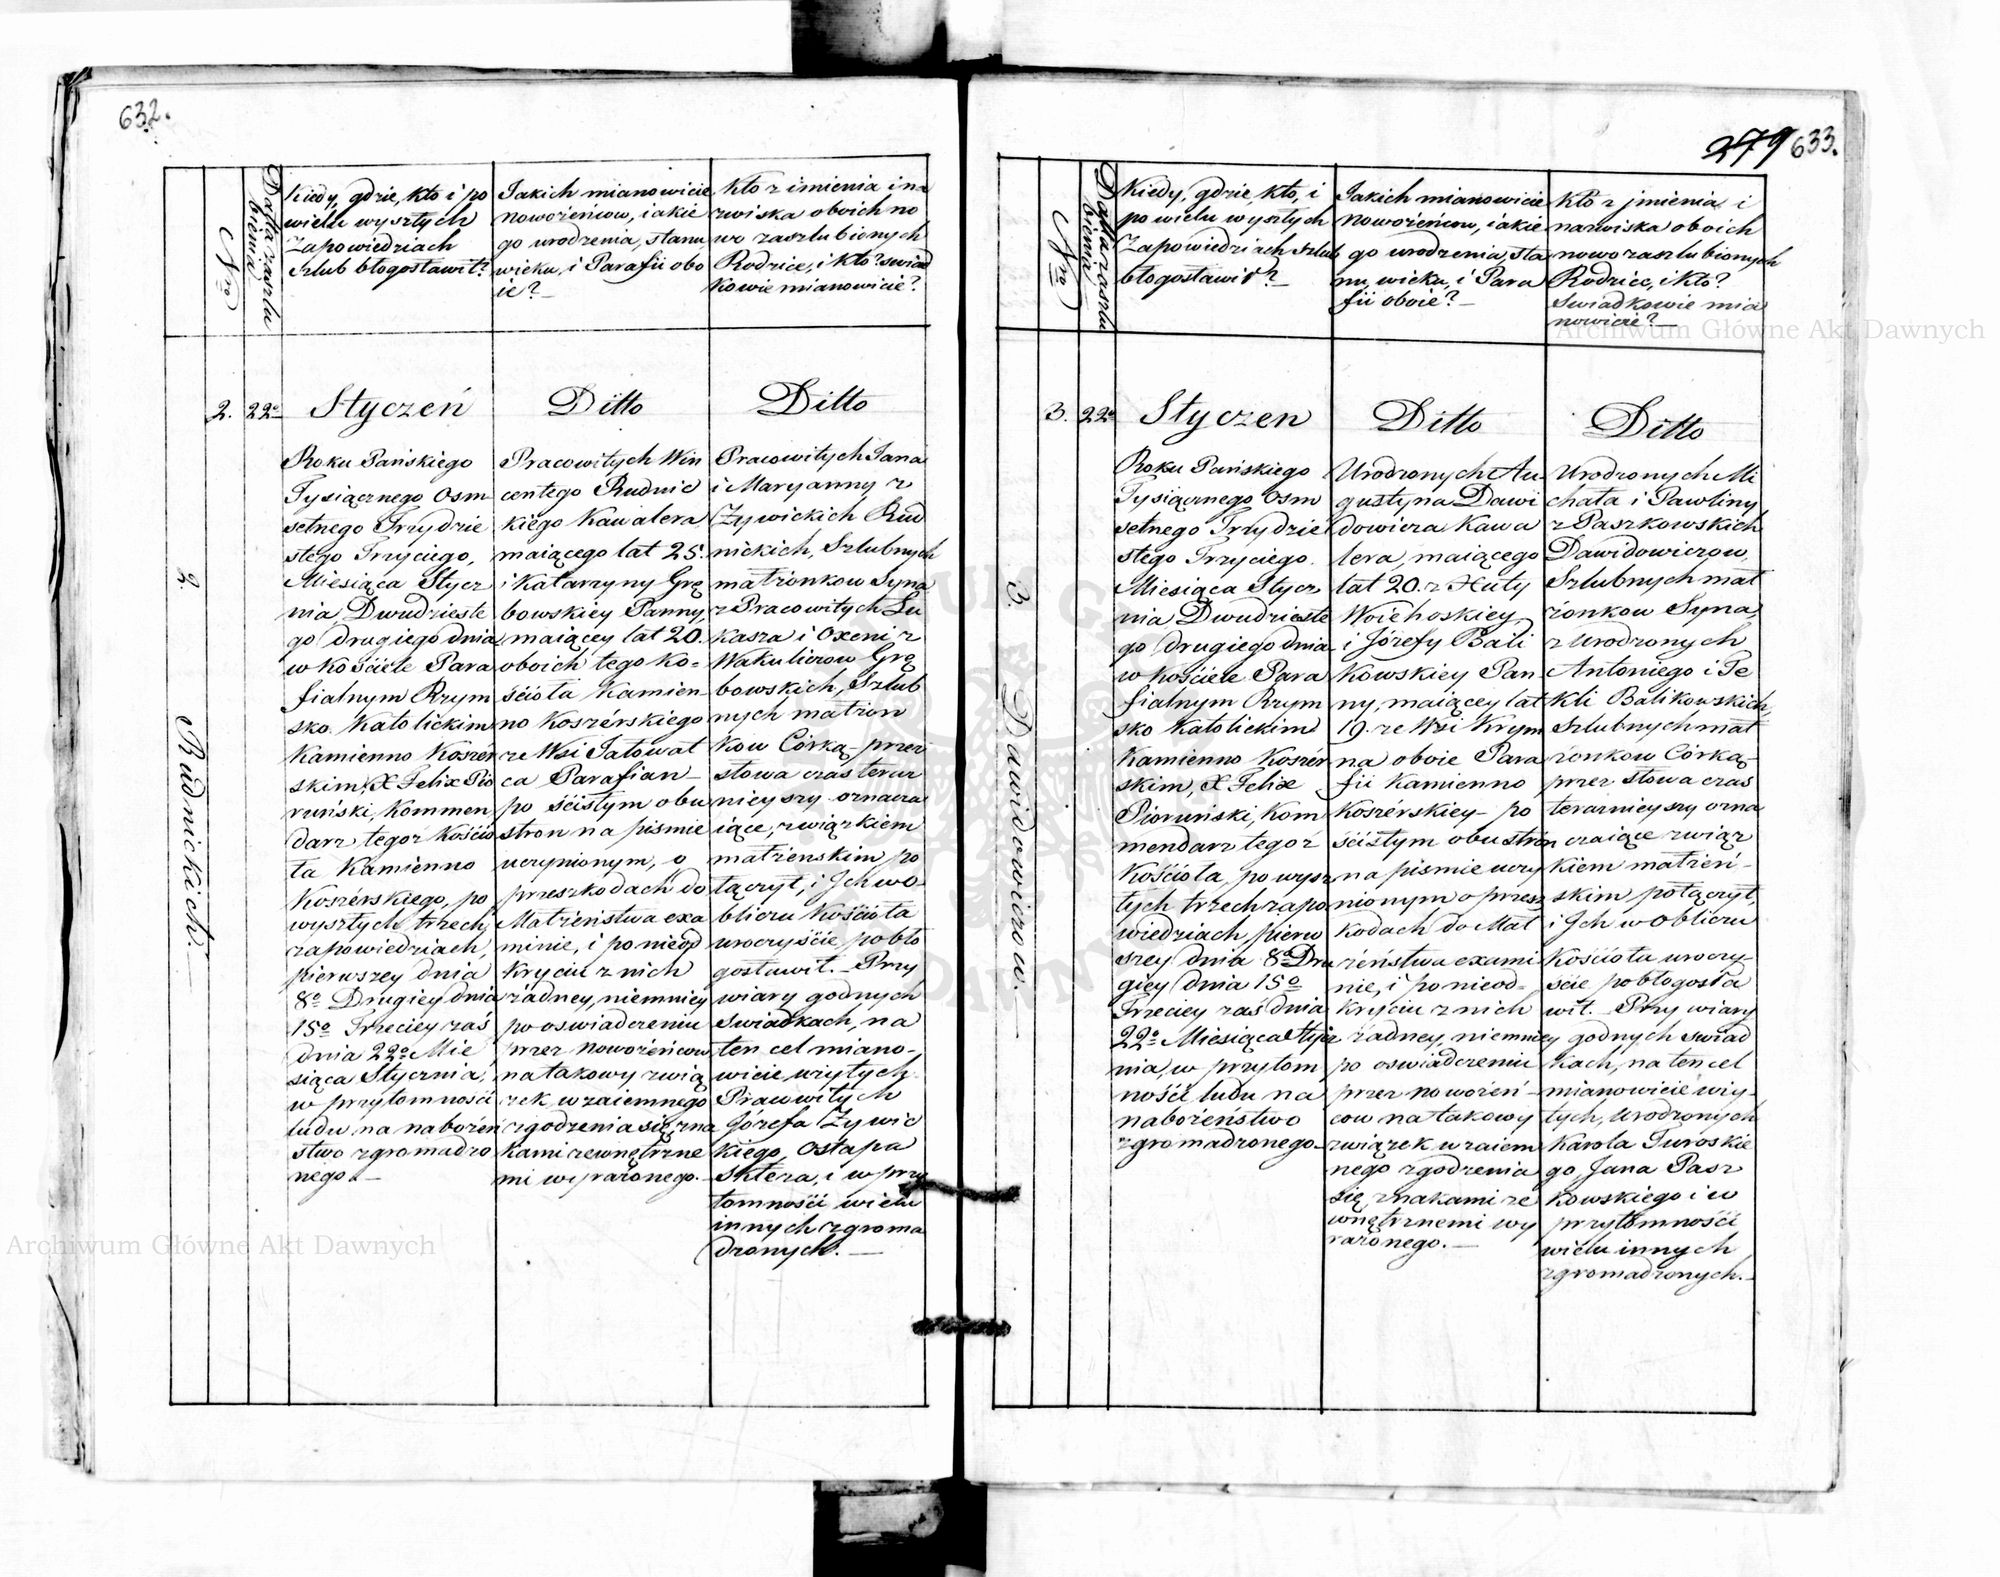 632.
Nro
Data zaszlu
bienia
Kiedy, gdzie, kto i po
wielu wyszłych
Zapowiedziach
szlub błogosławił?
Jakich mianowicie
nowożeńcow, i jakie
go urodzenia, stanu
wieku, i Parafii obo
ie?
Kto z imienia i na
zwiska oboich no
wo zaszlubionych
Rodzice, i kto? swiad
kowie mianowicie?
2.
Rudnickich.
2.
22º
Styczeń
Roku Pańskiego
Tysiącznego Osm
setnego Trzydzie
stego Trzyciego,
Miesiąca Stycz
nia, Dwudzieste
go drugiego dnia
w Kościele Para
fialnym Rzym
sko Katolickim
Kamienno Koszer
skim, X Felix Pio
ruński, Kommen
darz tegoż Kościo
ła Kamienno
Koszérskiego, po
wyszłych trzech
zapowiedziach,
pierwszey dnia
8º Drugiey dnia
15º Trzeciey zaś
dnia 22º Mie
siąca Stycznia,
w przytomności
ludu na nabożeń
stwo zgromadzo
nego.
Ditto
Pracowitych Win
centego Rudnic
kiego Kawalera
maiącego lat 25.
i Katarzyny Grę
bowskiey Panny,
maiącey lat 20.
oboich tego Ko-
ścioła Kamien-
no Koszérskiego
ze Wsi Jatowat
ca Parafian
po ścisłym obu
stron na pismie
uczynionym, o
przeszkodach do
Małżeństwa exa
minie, i po nieod
kryciu z nich
żadney, niemniey
po oswiadczeniu
przez Nowożeńcow
na takowy zwią
zek wzaiemnego
zgodzenia się, zna
kami zewnętrzne
mi wyrażonego.
Ditto
Pracowitych Jana
i Maryanny z
Żywickich Rud
nickich, Szlubnych
małżonkow Syna,
z Pracowitych Łu
kasza i Oxeni z
Wakuliczow Grę
bowskich, Szlub
nych małżon
kow Córką, przez
słowa czas teraz
nieyszy oznacza
iące, związkiem
małżenskim po
łączył, i Ich w o-
bliczu Kościoła
uroczyście pobło
gosławił. Przy
wiary godnych
Swiadkach, na
ten cel miano-
wicie wziętych
Pracowitych
Józefa Żywic
kiego, Ostapa
Sklera, i w przy
tomności wielu
innych zgroma
dzonych.
279
633.
Nro
Data zaszlu
bienia
Kiedy, gdzie, kto, i
po wielu wyszłych
Zapowiedziach szlub
błogosławił?
Jakich mianowicie
Nowożeńcow, i jakie
go urodzenia, sta
nu, wieku, i Para
fii oboie?
Kto z jmienia, i
nazwiska oboich
nowo zaszlubionych
Rodzice, i kto?
Swiadkowie mia
nowicie?
Archiwum Główne Akt Dawnych
3.
Dawidowiczow.
3.
22º
Styczen
Roku Pańskiego
Tysiącznego Osm
setnego Trzydzie
stego Trzyciego.
Miesiąca Stycz
nia Dwudzieste
go drugiego dnia
w Kościele Para
fialnym Rzym
sko Katolickim
Kamienno Koszér
skim, X Felix
Pioruński, Kom
mendarz tegoż
Kościoła, po wysz
łych trzech zapo
wiedziach, pierw
szey dnia 8º Dru
giey dnia 15º
Trzeciey zaś dnia
22º Miesiąca Stycz
nia, w przytom
ności ludu na
nabożeństwo
zgromadzonego
Ditto
Urodzonych Au
gustyna Dawi
dowicza Kawa
lera, maiącego
lat 20. z Huty
Woiehoskiey,
i Józefy Bali
kowskiey Pan
ny, maiącey lat
19. ze Wsi Krym
na oboie Para
fii Kamienno
Koszérskiey, po
ścisłym obu stron
na pismie uczy
nionym o przesz
kodach do Mał
żeństwa exami
nie, i po nieod-
kryciu z nich
żadney, niemniey
po oswiadczeniu
przez nowożeń-
cow na takowy
związek wzaiem
nego zgodzenia
się, znakami ze
wnętrznemi wy
rażonego.
Ditto
Urodzonych Mi
chała i Pawliny
z Paszkowskich
Dawidowiczow,
Szlubnych mał
żonkow Syna,
z Urodzonych
Antoniego i Te
kli Balikowskich
Szlubnych mał
żonkow Córką,
przez słowa czas
teraznieyszy ozna
czaiące związ
kiem małżeń-
skim połączył,
i Ich w obliczu
Kościoła uroczy-
ście pobłogosła
wił. Przy wiary
godnych swiad
kach, na ten cel
mianowicie wzię-
tych, Urodzonych
Karola Turoskie
go, Jana Pasz
kowskiego i w
przytomności
wielu innych
zgromadzonych.
Archiwum Główne Akt Dawnych